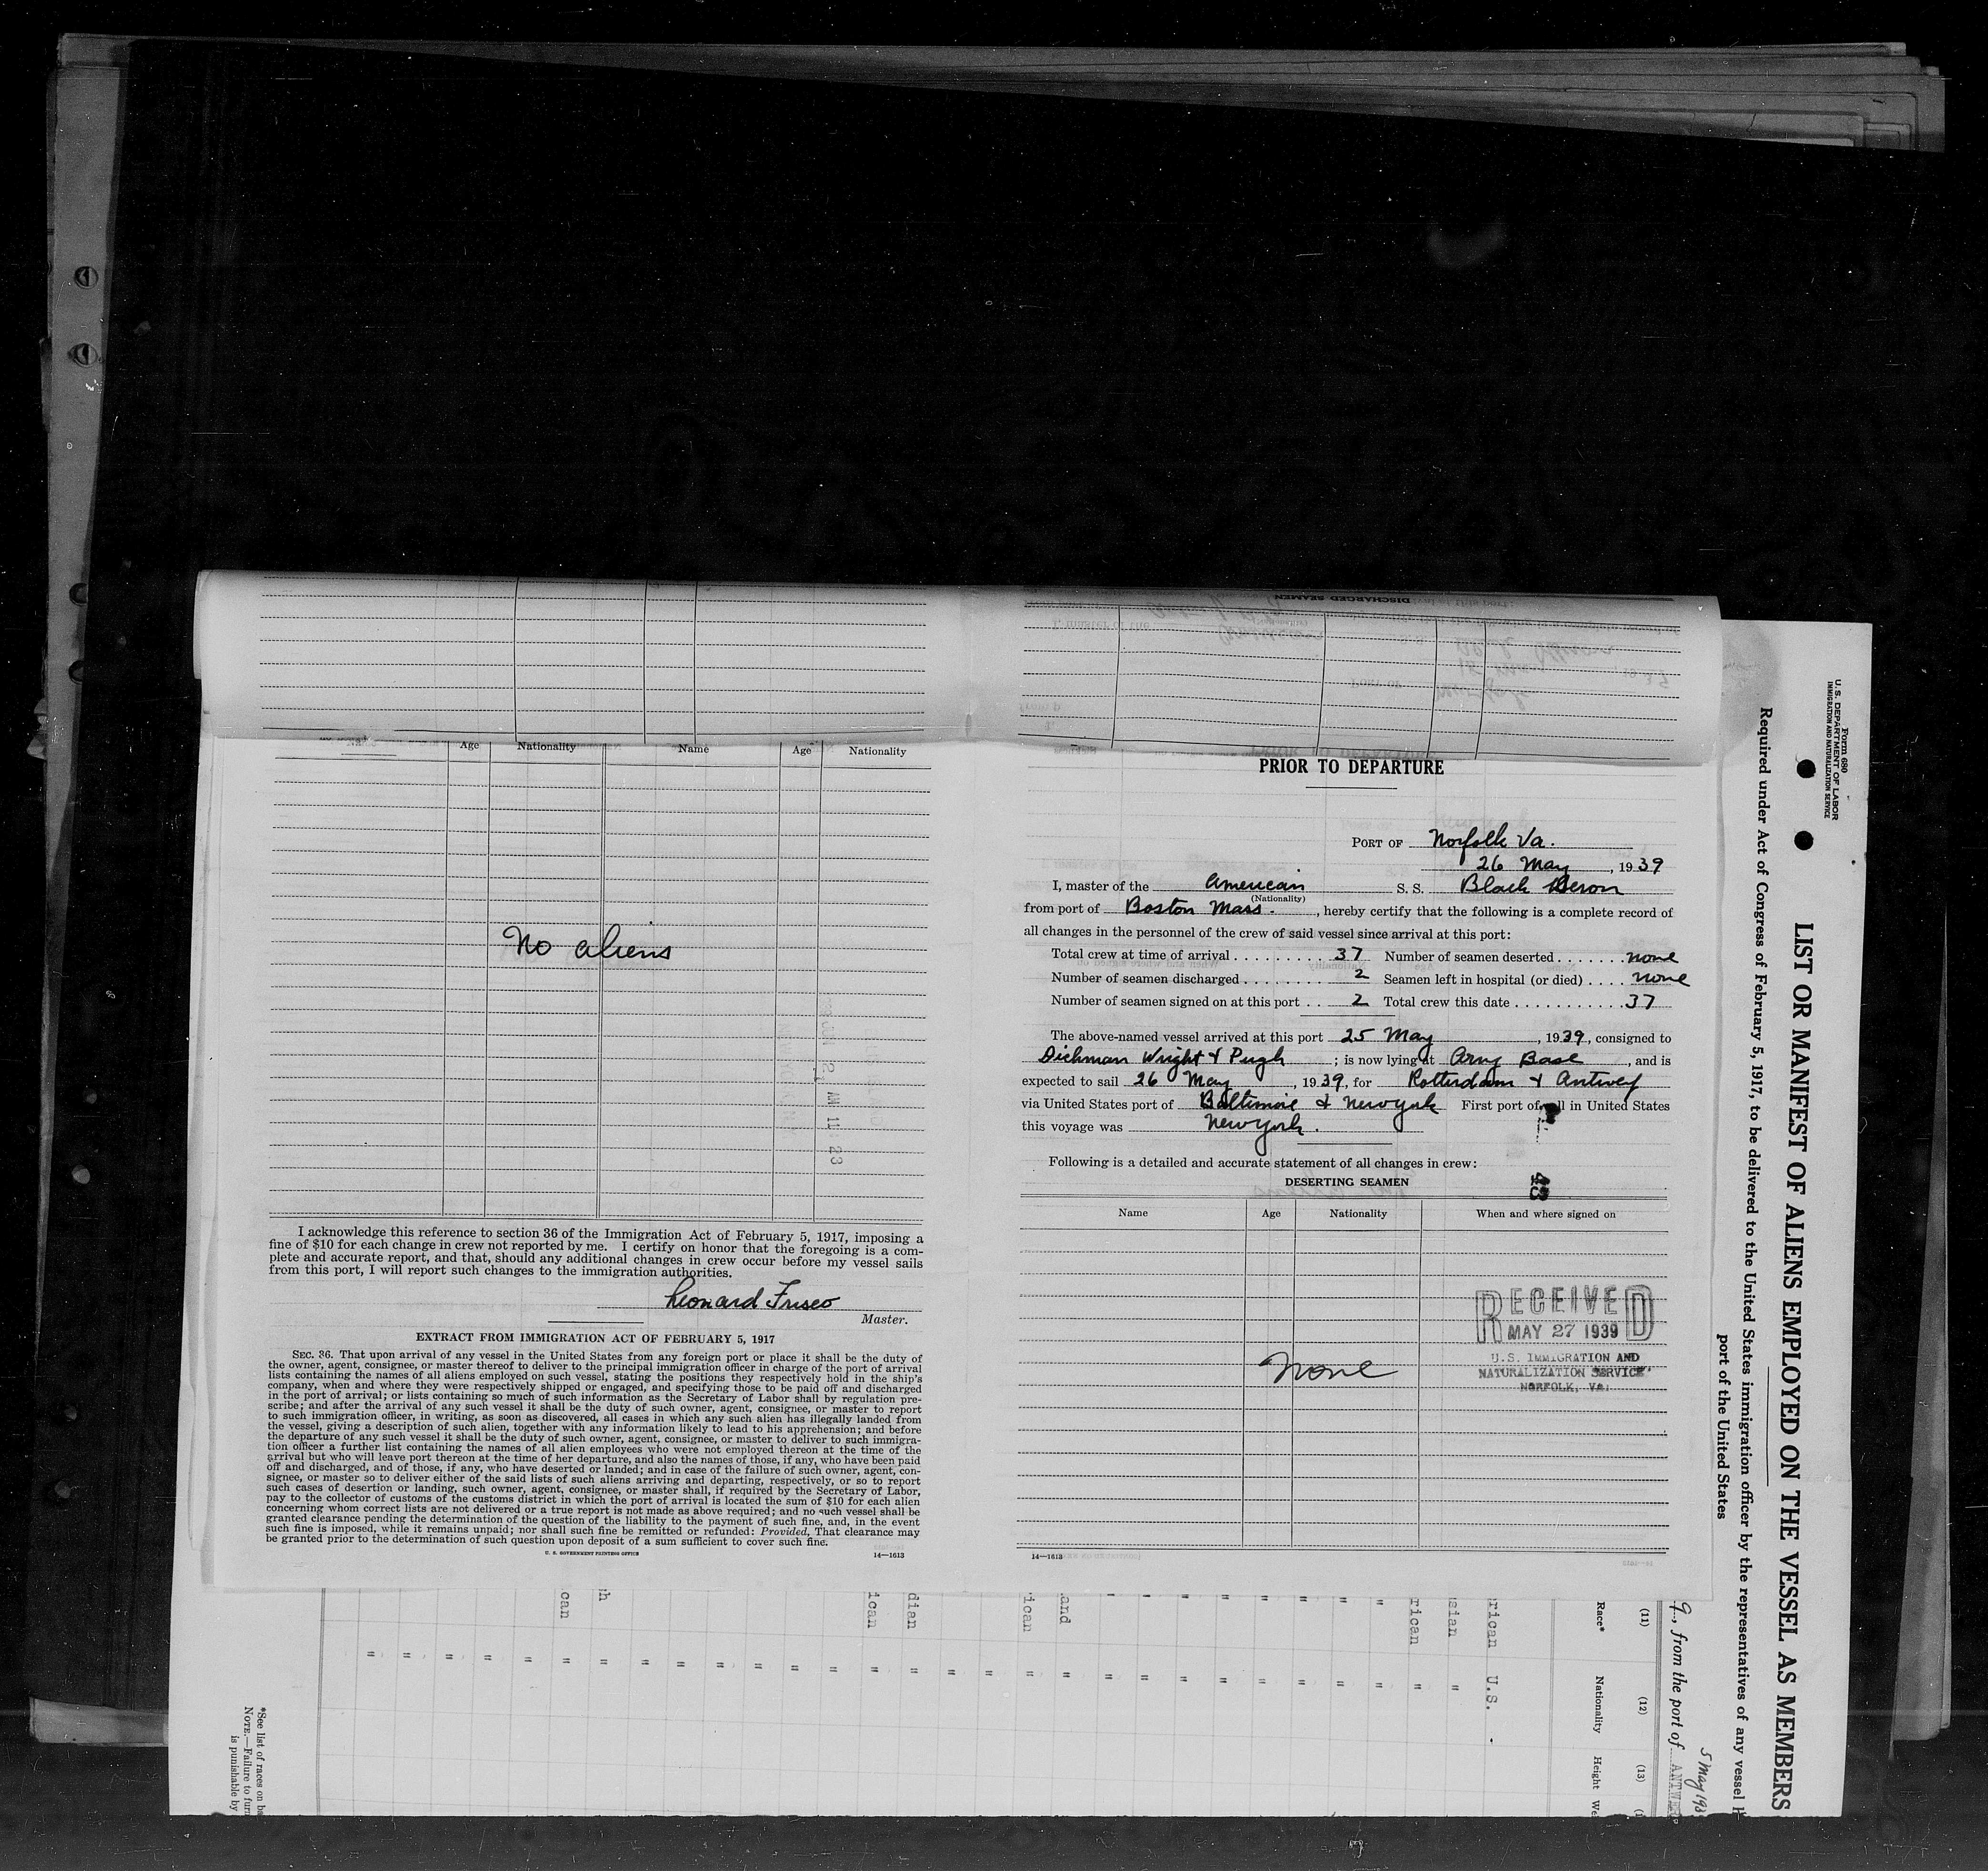 Name Age Nationality Name Age Nationality
No aliens
I acknowledge this reference to section 36 of the Immigration Act of February 5, 1917, imposing a
fine of $10 for each change in crew not reported by me. I certify on honor that the foregoing is a com-
plete and accurate report, and that, should any additional changes in crew occur before my vessel sails
from this port, I will report such changes to the immigration authorities.
Leonard Frisco
Master.
EXTRACT FROM IMMIGRATION ACT OF FEBRUARY 5, 1917
SEC. 36. That upon arrival of any vessel in the United States from any foreign port or place it shall be the duty of
the owner, agent, consignee, or master thereof to deliver to the principal immigration officer in charge of the port of arrival
lists containing the names of all aliens employed on such vessel, stating the positions they respectively hold in the ship's
company, when and where they were respectively shipped or engaged, and specifying those to be paid off and discharged
in the port of arrival; or lists containing so much of such information as the Secretary of Labor shall by regulation pre-
scribe; and after the arrival of any such vessel it shall be the duty of such owner, agent, consignee, or master to report
to such immigration officer, in writing, as soon as discovered, all cases in which any such alien has illegally landed from
the vessel, giving a description of such alien, together with any information likely to lead to his apprehension; and before
the departure of any such vessel it shall be the duty of such owner, agent, consignee, or master to deliver to such immigra-
tion officer a further list containing the names of all alien employees who were not employed thereon at the time of the
arrival but who will leave port thereon at the time of her departure, and also the names of those, if any, who have been paid
off and discharged, and of those, if any, who have deserted or landed; and in case of the failure of such owner, agent, con-
signee, or master so to deliver either of the said lists of such aliens arriving and departing, respectively, or so to report
such cases of desertion or landing, such owner, agent, consignee, or master shall, if required by the Secretary of Labor,
pay to the collector of customs of the customs district in which the port of arrival is located the sum of $10 for each alien
concerning whom correct lists are not delivered or a true report is not made as above required; and no such vessel shall be
granted clearance pending the determination of the question of the liability to the payment of such fine, and, in the event
such fine is imposed, while it remains unpaid; nor shall such fine be remitted or refunded: Provided, That clearance may
be granted prior to the determination of such question upon deposit of a sum sufficient to cover such fine.
U. S. GOVERNMENT PRINTING OFFICE 14—1613
DISCHARGED SEAMEN
PRIOR TO DEPARTURE
PORT OF Norfolk Va.
26 May, 1939
I, master of the American S. S. Black Heron
(Nationality)
from port of Boston Mass., hereby certify that the following is a complete record of
all changes in the personnel of the crew of said vessel since arrival at this port:
Total crew at time of arrival 37 Number of seamen deserted none
Number of seamen discharged 2 Seamen left in hospital (or died) none
Number of seamen signed on at this port 2 Total crew this date 37
The above-named vessel arrived at this port 25 May, 1939, consigned to
Dichman Wright & Pugh; is now lying at Army Base, and is
expected to sail 26 May, 1939, for Rotterdam & Antwerp
via United States port of Baltimore & New York First port of call in United States
this voyage was New York.
Following is a detailed and accurate statement of all changes in crew:
DESERTING SEAMEN
43
Name Age Nationality When and where signed on
RECEIVED
MAY 27 1939
U.S. IMMIGRATION AND
NATURALIZATION SERVICE
NORFOLK, VA.
None
14—1613
Form 680
U. S. DEPARTMENT OF LABOR
IMMIGRATION AND NATURALIZATION SERVICE
LIST OR MANIFEST OF ALIENS EMPLOYED ON THE VESSEL AS MEMBERS
Required under Act of Congress of February 5, 1917, to be delivered to the United States immigration officer by the representatives of any vessel
port of the United States
5 May 193
9, from the port of ANTWE
(11) (12) (13)
Race* Nationality Height We
rican U.S.
sian "
rican "
" "
and "
ican "
dian "
ican "
h "
can "
*See list of races on ba
NOTE.—Failure to furn
is punishable by